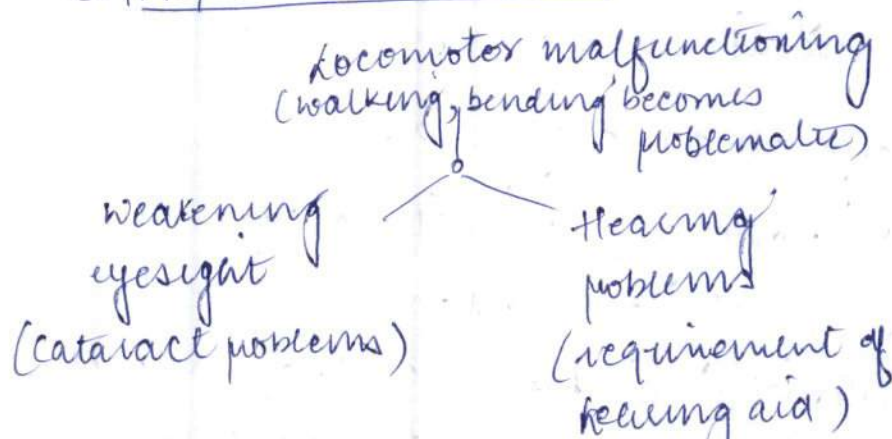 Locomotor malfunctioning
(walking, bending becomes
problematic)
Weakening
eyesight
(cataract problems)
Hearing
problems
(requirement of
hearing aid)